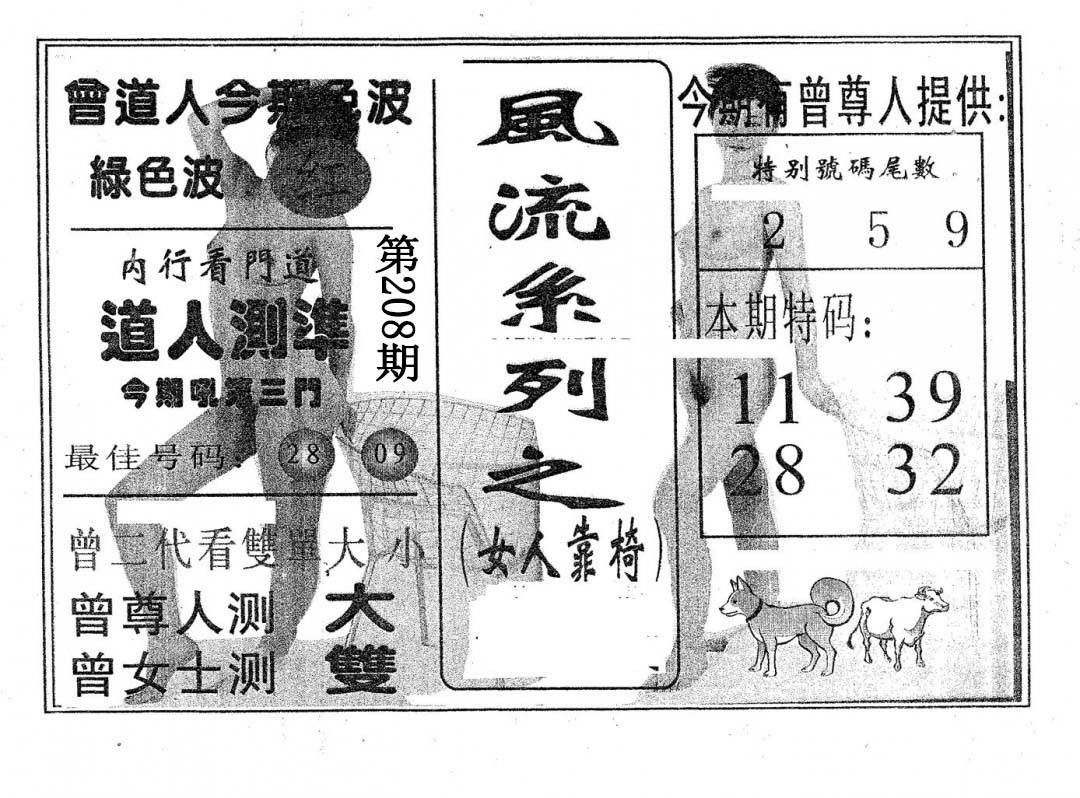 曾道人今期色波
綠色波
红
内行看門道
道人測準
今期吼準三門
最佳号码: 28 09
曾二代看雙單大小
曾尊人测 大
曾女士测 雙
第208期
風流系列之
(女人靠椅)
今期有曾尊人提供:
特别號碼尾數
2 5 9
本期特码:
11 39
28 32